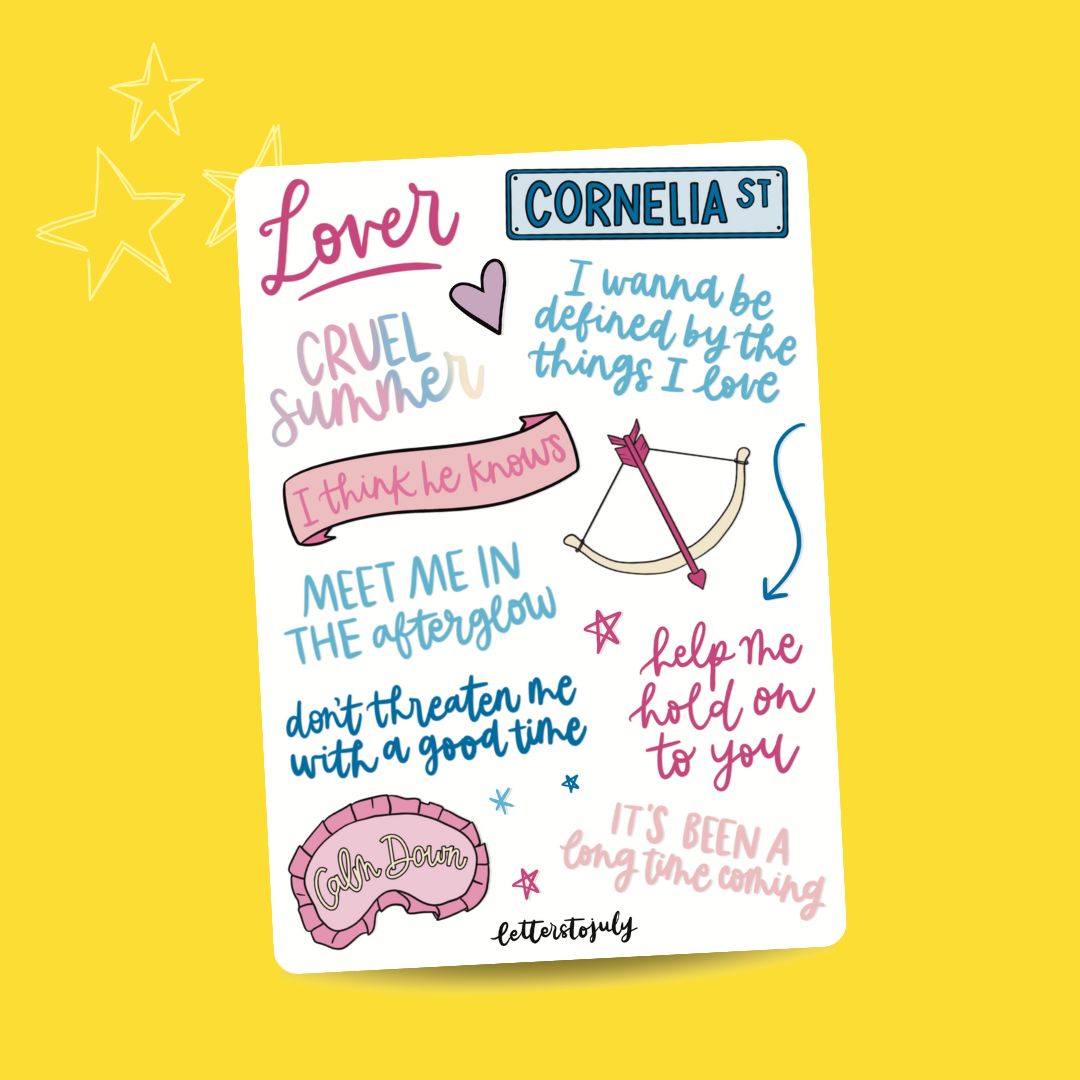 Lover
CORNELIA ST
CRUEL
summer
I wanna be
defined by the
things I love
I think he knows
MEET ME IN
THE afterglow
help me
hold on
to you
don't threaten me
with a good time
Calm Down
IT'S BEEN A
long time coming
letterstojuly